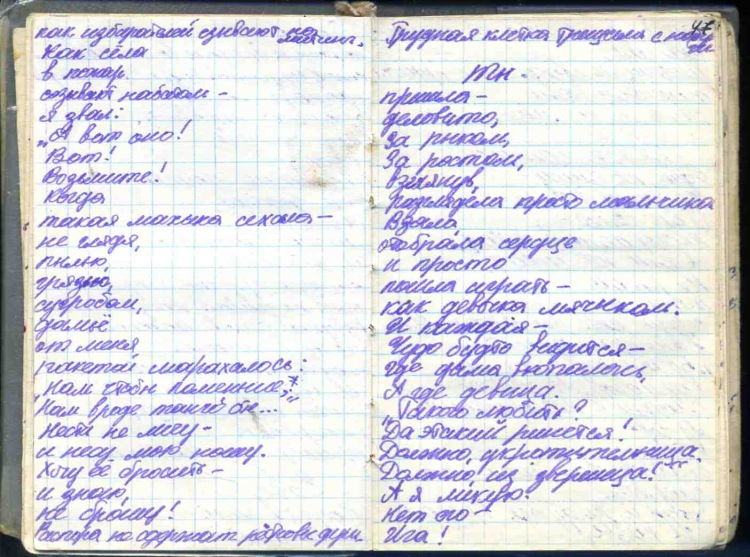 как избирателей сзывают на митинг.
Как сёла
в пожар
созывают набатом –
я звал:
„А вот оно!
Вот!
Возьмите!
Когда
такая махина ахала –
не глядя,
пылью,
грязью,
сугробом,
дамьё
от меня
ракетой шарахалось:
„Нам чтобы поменьше,
Нам вроде танго бы...“
Нести не могу –
и несу мою ношу.
Хочу её бросить –
и знаю,
не брошу!
Распора не сдержат рёбровы дуги
47
Грудная клетка трещала с натуги
Ты.
пришла –
деловито,
За рыком,
За ростом,
взглянув,
разглядела просто мальчика
Взяла,
отобрала сердце
и просто
пошла играть –
как девочка мячиком.
И каждая –
Чудо будто видится –
где дама вкопалась,
А где девица.
„Такого любить?
Да этакий ринется!
Должно, укротительница.
Должно, из зверинца!“
А я ликую.
Нет его –
Ига!